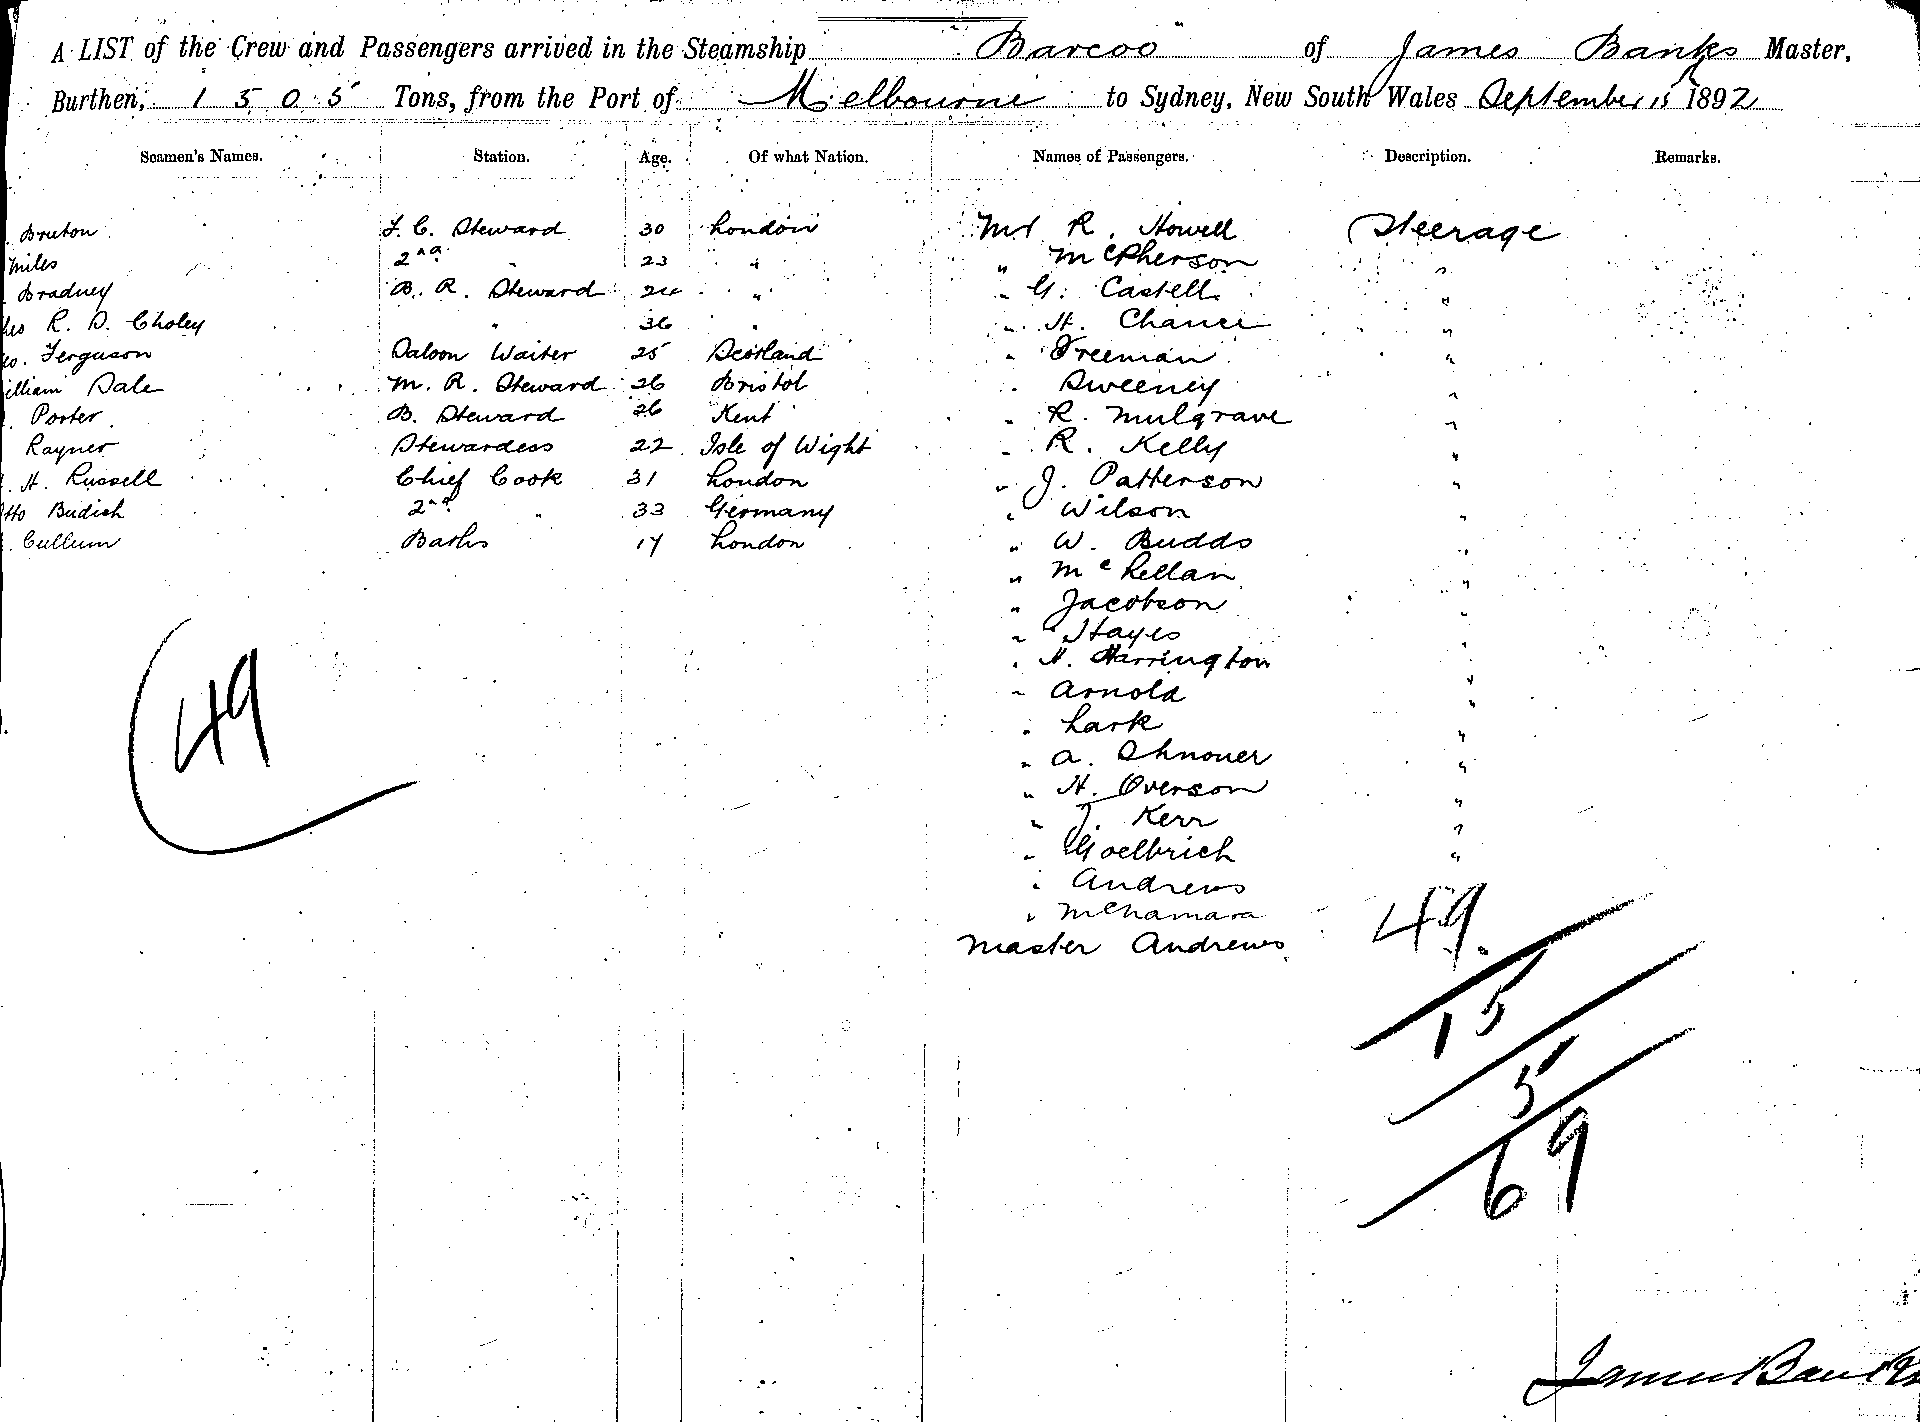 A LIST of the Crew and Passengers arrived in the Steamship "Barcoo" of James Banks Master,
Burthen, 1505 Tons, from the Port of Melbourne to Sydney, New South Wales September 15 1892
Seamen's Names. Station. Age. Of what Nation. Names of Passengers. Description. Remarks.
Bruton F. C. Steward 30 London Mr R. Howell Steerage
Miles 2nd " 23 " " McPherson "
Bradney B. R. Steward 24 " " G. Castell "
R. D. Choley " 36 " " H. Chance "
Ferguson Saloon Waiter 25 Scotland " Freeman "
illiam Dale M. R. Steward 26 Bristol " Sweeney "
Porter B. Steward 26 Kent " R. Mulgrave "
Rayner Stewardess 22 Isle of Wight " R. Kelly "
H. Russell Chief Cook 31 London " J. Patterson "
tto Budich 2nd " 33 Germany " Wilson "
Cullum Baths 17 London " W. Budds "
" McLellan "
" Jacobson "
" Hayes "
" H. Harrington "
" Arnold "
" Lark "
" A. Shnouer "
" H. Overson "
" J. Kerr "
" Goelbrich "
" Andrews
" McNamara
Master Andrews
49
49
15
5
69
James Banks